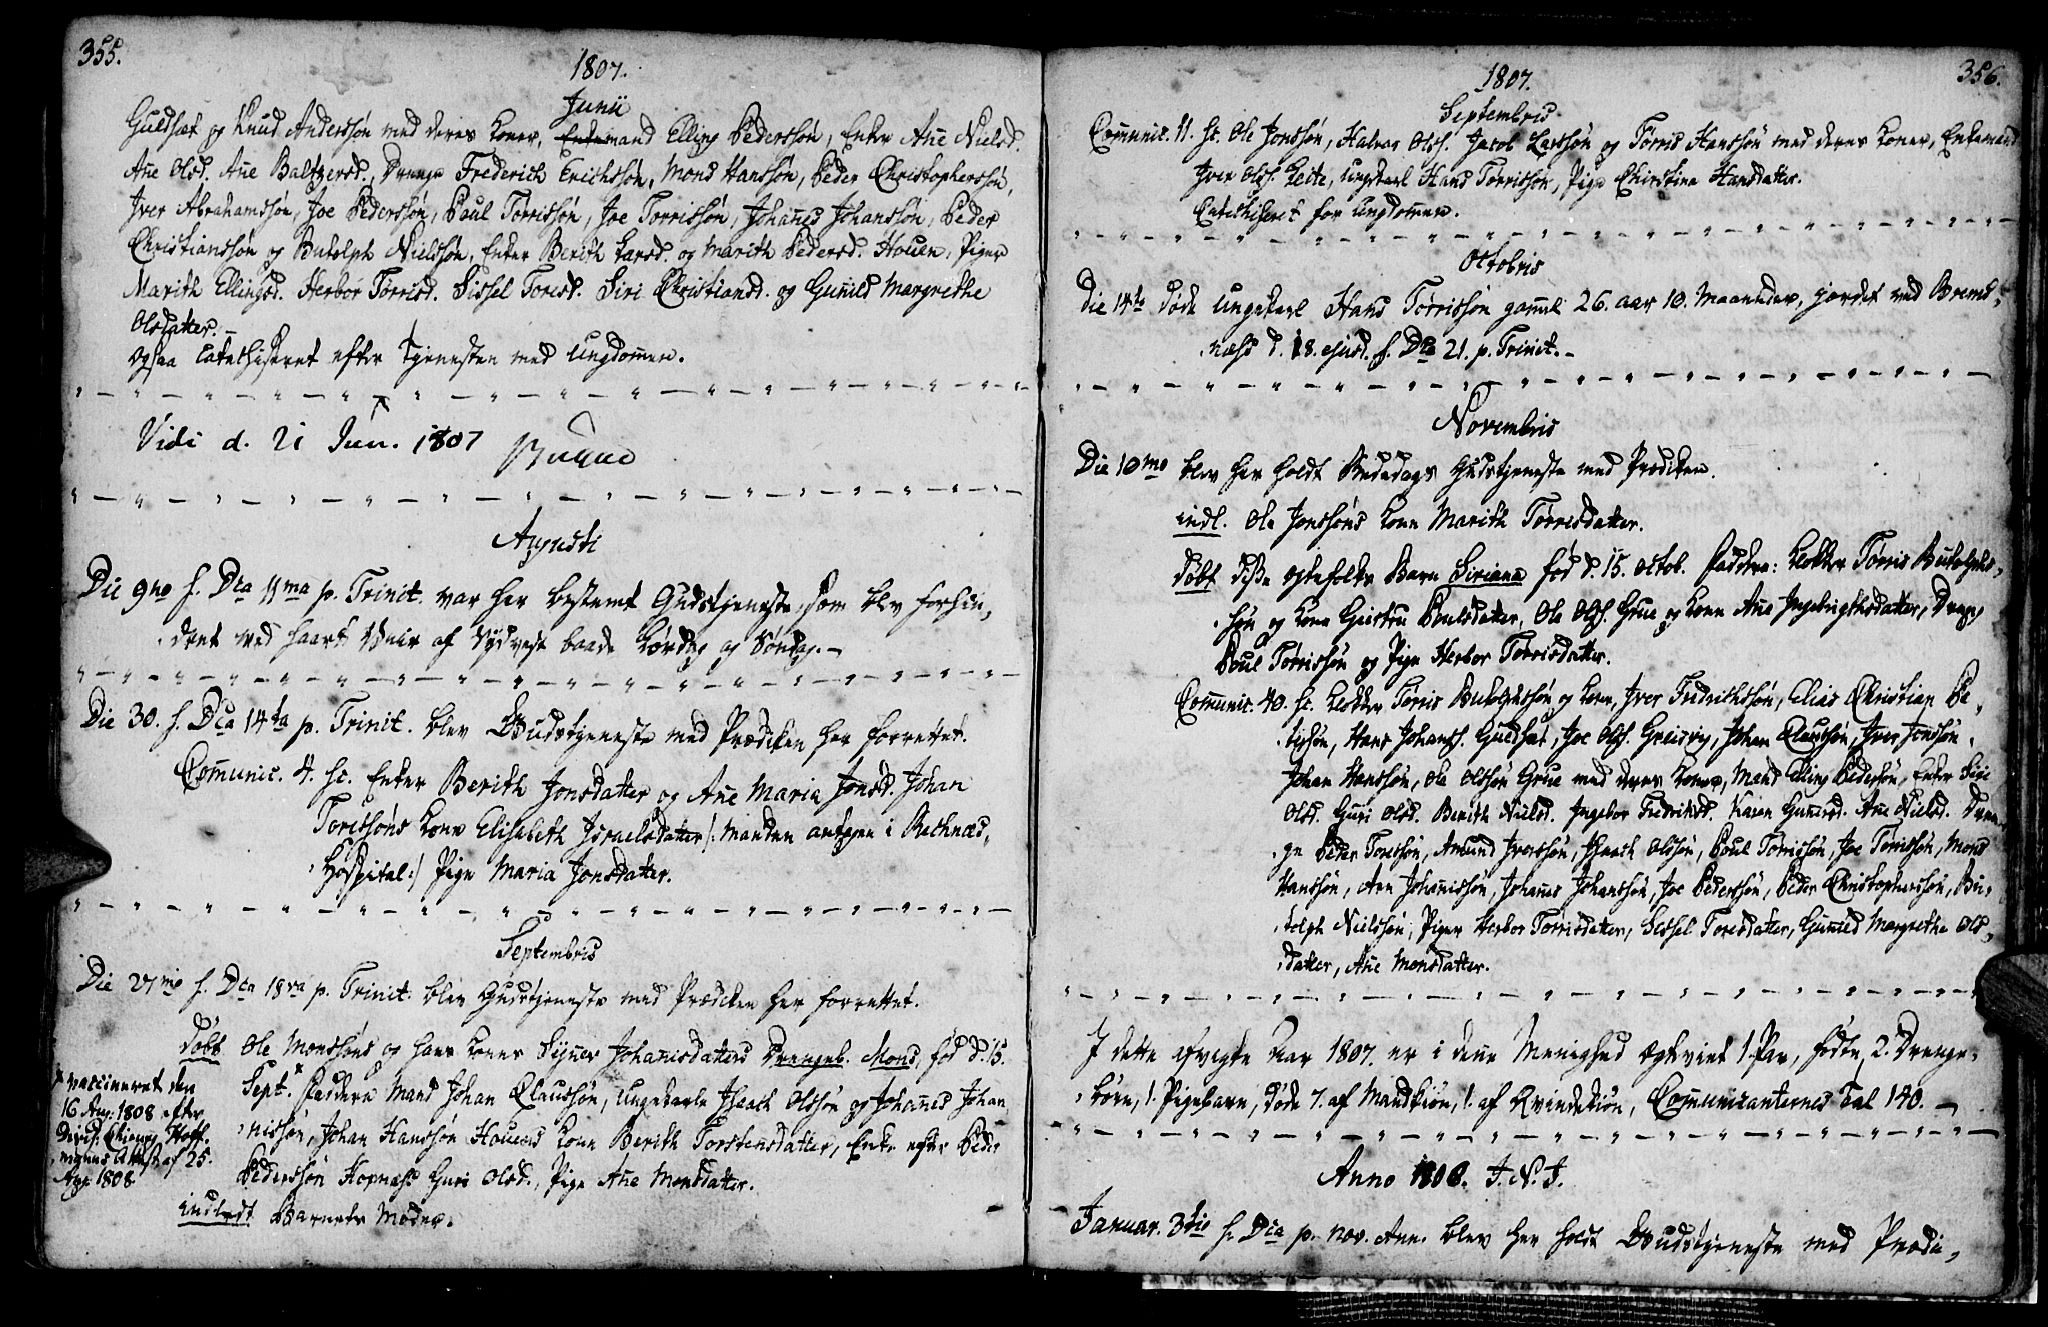 355.
1807.
Junii
Guldset og Knud Anderssøn med deres Koner, Enkemand Elling Pederssøn, Enker Ane Nielsd.
Ane Olsd. Ane Baltzersd., Drenge Frederich Erichssøn, Mons Hanssøn, Peder Christopherssøn,
Iver Abrahamssøn, Joe Pederssøn, Poul Tørrissøn, Joe Torrissøn, Johanes Johanssøn, Peder
Christianssøn og Butolph Nielssøn, Enker Berith Larsd. og Marith Pedersd. Houen, Piger
Marith Ellingsd. Herbor Tørrisd. Sissel Toresd. Siri Christiansd. og Gunild Margrethe
Olsdatter.
Ogsaa Catechiseret efter Tjenesten med Ungdommen.
Vidi d. 21 Jun. 1807 Bugge
Augusti
Die 9no f. Dca 11ma p. Trinit. var her bestemt Gudstjeneste, som blev forhin,
dret ved haart Veir af Sydvest baade Lørdag og Søndag.
Die 30. f. Dca 14ta p. Trinit. blev Gudstjeneste med Prædiken her forrettet.
Comunic. 4. sc. Enker Berith Jonsdatter og Ane Maria Jonsd. Johan
Toressøns Kone Elisabeth Israelsdatter /: Manden antagen i Reknæs,
Hospital :/ Pige Maria Jonsdatter.
Septembris
Die 27mo f. Dca 18va p. Trinit. blev Gudstjeneste med Prædiken her forrettet.
Døbt Ole Monssøns og hans Kones Synner Johanisdatters Drengeb. Mons, fød d. 15.
Sept. Faddere Mand Johan Claussøn, Ungekarle Isaach Olssøn og Johanes Johan
nissøn, Johan Hanssøn Houens Kone Berith Torstensdatter, Enke efter Peder
Pederssøn Hopnæs Guri Olsd., Pige Ane Monsdatter.
indledt Barnets Moder.
vaccineret den
16 Aug. 1808 efter
Chirurg. Hoff
Attest af 25.
Aug. 1808
356.
1807.
Septembris
Comunic. 11. sc. Ole Jonssøn, Halvor Olss. Jacob Larssøn og Tørris Hanssøn med deres Koner, Enkemand
Iver Olss. Leite, Ungkarl Hans Tørrissøn, Pige Christina Hansdatter.
Catechiseret for Ungdommen.
Octobris
Die 14de døde Ungekarl Hans Tørrissøn gaml 26. aar 10. Maaneder, jordet ved Brems,
næss d. 18. ejusd. f. Dca 21. p. Trinit.
Novembris
Die 10mo blev her holdt Bededags Gudstjeneste med Prædiken.
indl. Ole Jonssøns Kone Marith Tørresdatter.
Døbt disse Ægtefolks Barn Siriana fød d. 15. Octob. Faddere: Klokker Tørris Butolphs,
søn og Kone Gjertru Poulsdatter, Ole Olss. Grue og Kone Ane Ingebrigthsdatter, Dreng
Poul Tørrissøn og Pige Herbor Torrisdatter.
Comunic. 40. sc. Klokker Tørris Butolphssøn og Kone, Iver Fredrichssøn, Elias Christian Pe,
terssøn, Hans Johanss. Guldset, Joe Olss. Greisvig, Johan Claussøn, Iver Jonssøn,
Johan Hanssøn, Ole Olssøn Grue med deres Koner, Mand Elling Pederssøn, Enker Sigi
Olsd. Guri Olsd. Berith Nielsd. Ingebor Fredriksd. Karen Gunersd. Ane Nielsd. Dren,
ge Peder Toressøn, Amund Iverssøn, Isaach Olssøn, Poul Tørrissøn, Joe Tørrissøn, Mons
Hanssøn, Aren Johanissøn, Johanes Johanssøn, Joe Pederssøn, Peder Christopherssøn, Bu,
tolph Nielssøn, Piger Herbor Tørrisdatter, Sissel Toresdatter, Gunild Margrethe Ols,
datter, Ane Monsdatter.
I dette afvigte Aar 1807. er i denne Menighed Ægteviet 1. Par, fødte, 2. Drenge,
børn, 1. Pigebarn, døde 7. af Mandkiøn, 1. af Kvindekiøn, Comunicanternes Tal 140.
Anno 1808. I. N. J.
Januar. 3tio f. Dca p. nov. Ann. blev her holdt Gudstjeneste med Prædi,